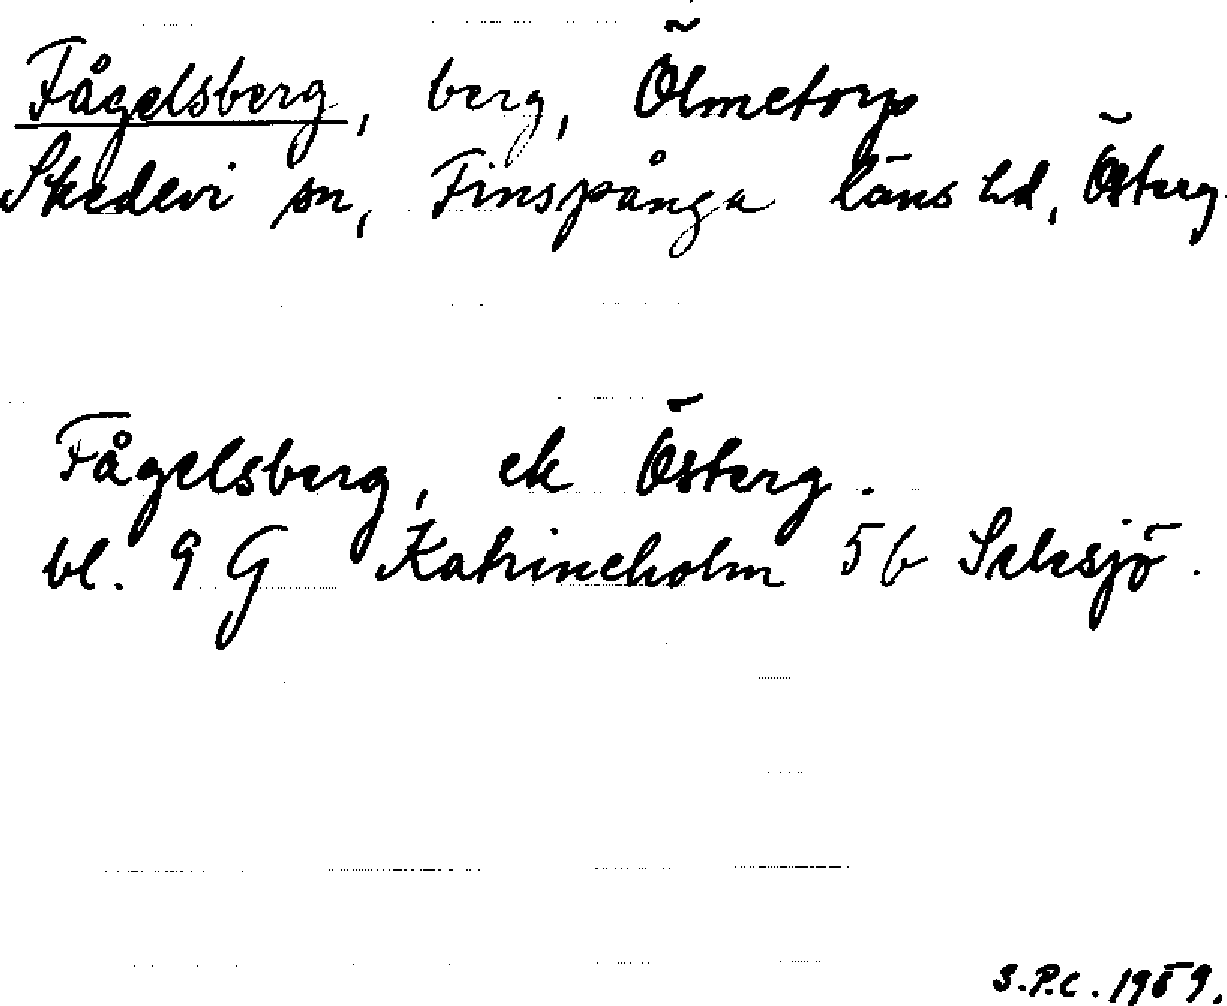 Fågelsberg, berg, Ölmetorp
Skedevi sn, Finspånga läns hd, Österg.
Fågelsberg, ek Österg.
bl. 9 G Katrineholm 5 b
S.P.C. 1959.